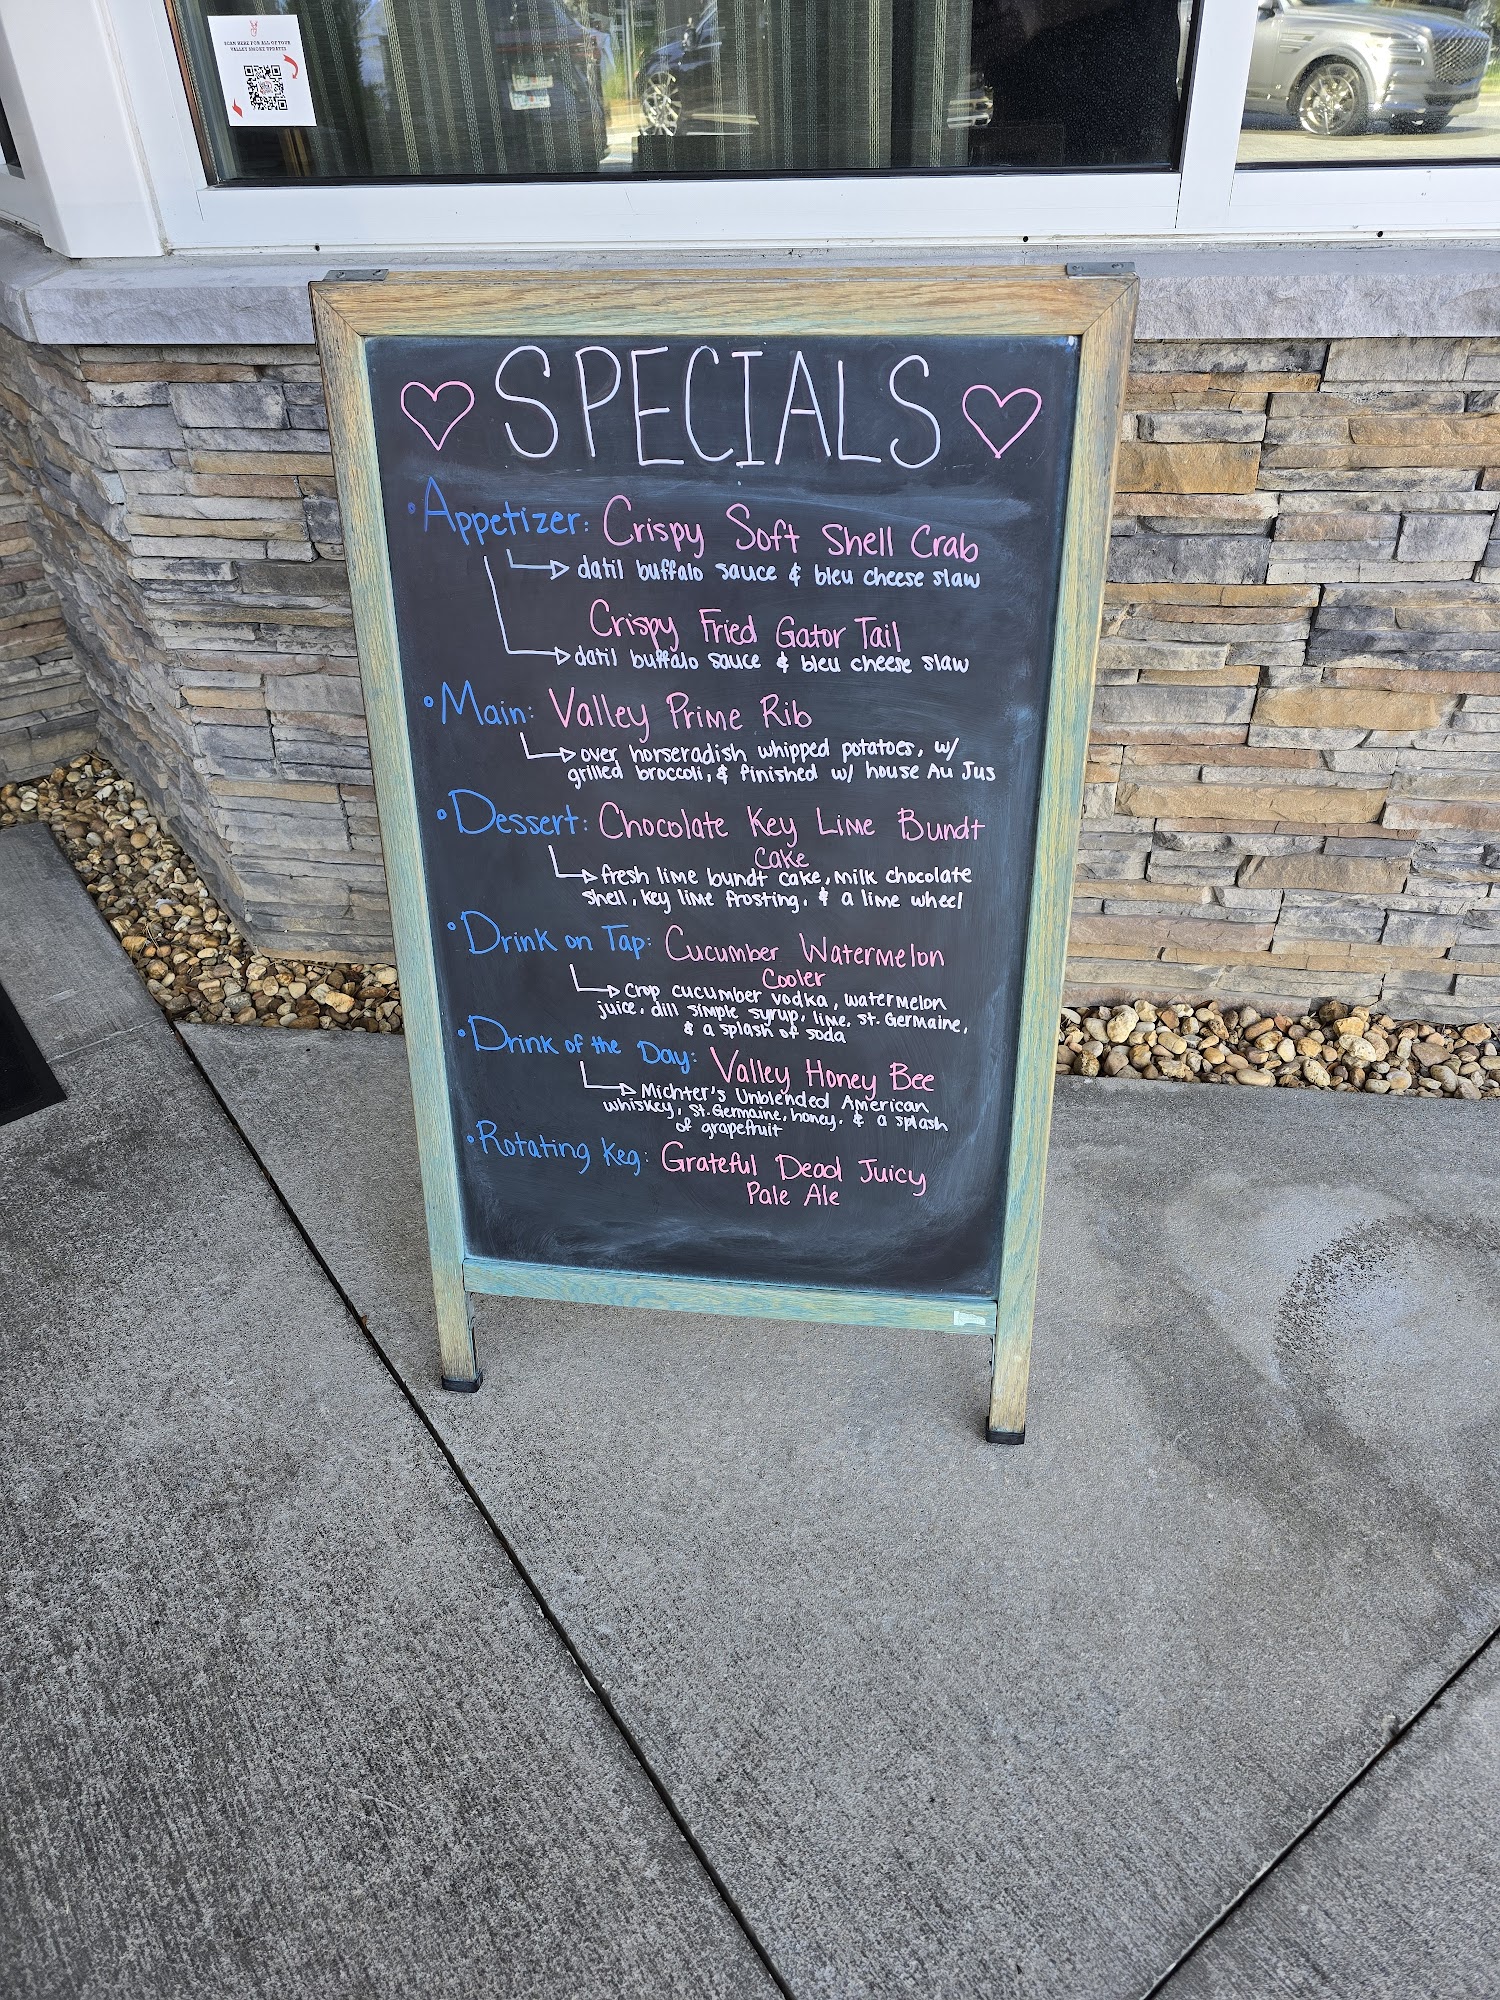 SCAN HERE FOR ALL OF YOUR
VALLEY SMOKE UPDATES
SPECIALS
• Appetizer: Crispy Soft Shell Crab
datil buffalo sauce & bleu cheese slaw
Crispy Fried Gator Tail
datil buffalo sauce & bleu cheese slaw
• Main: Valley Prime Rib
over horseradish whipped potatoes, w/
grilled broccoli, & finished w/ house Au Jus
• Dessert: Chocolate Key Lime Bundt
Cake
fresh lime bundt cake, milk chocolate
shell, key lime frosting, & a lime wheel
• Drink on Tap: Cucumber Watermelon
Cooler
Crop cucumber vodka, watermelon
juice, dill simple syrup, lime, St. Germaine,
& a splash of soda
• Drink of the Day: Valley Honey Bee
Michter's Unblended American
whiskey, St. Germaine, honey, & a splash
of grapefruit
• Rotating Keg: Grateful Dead Juicy
Pale Ale